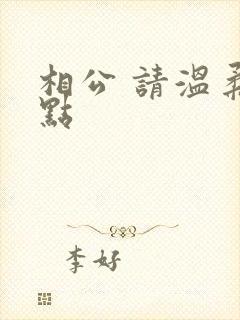 相公 請溫柔
點
李好